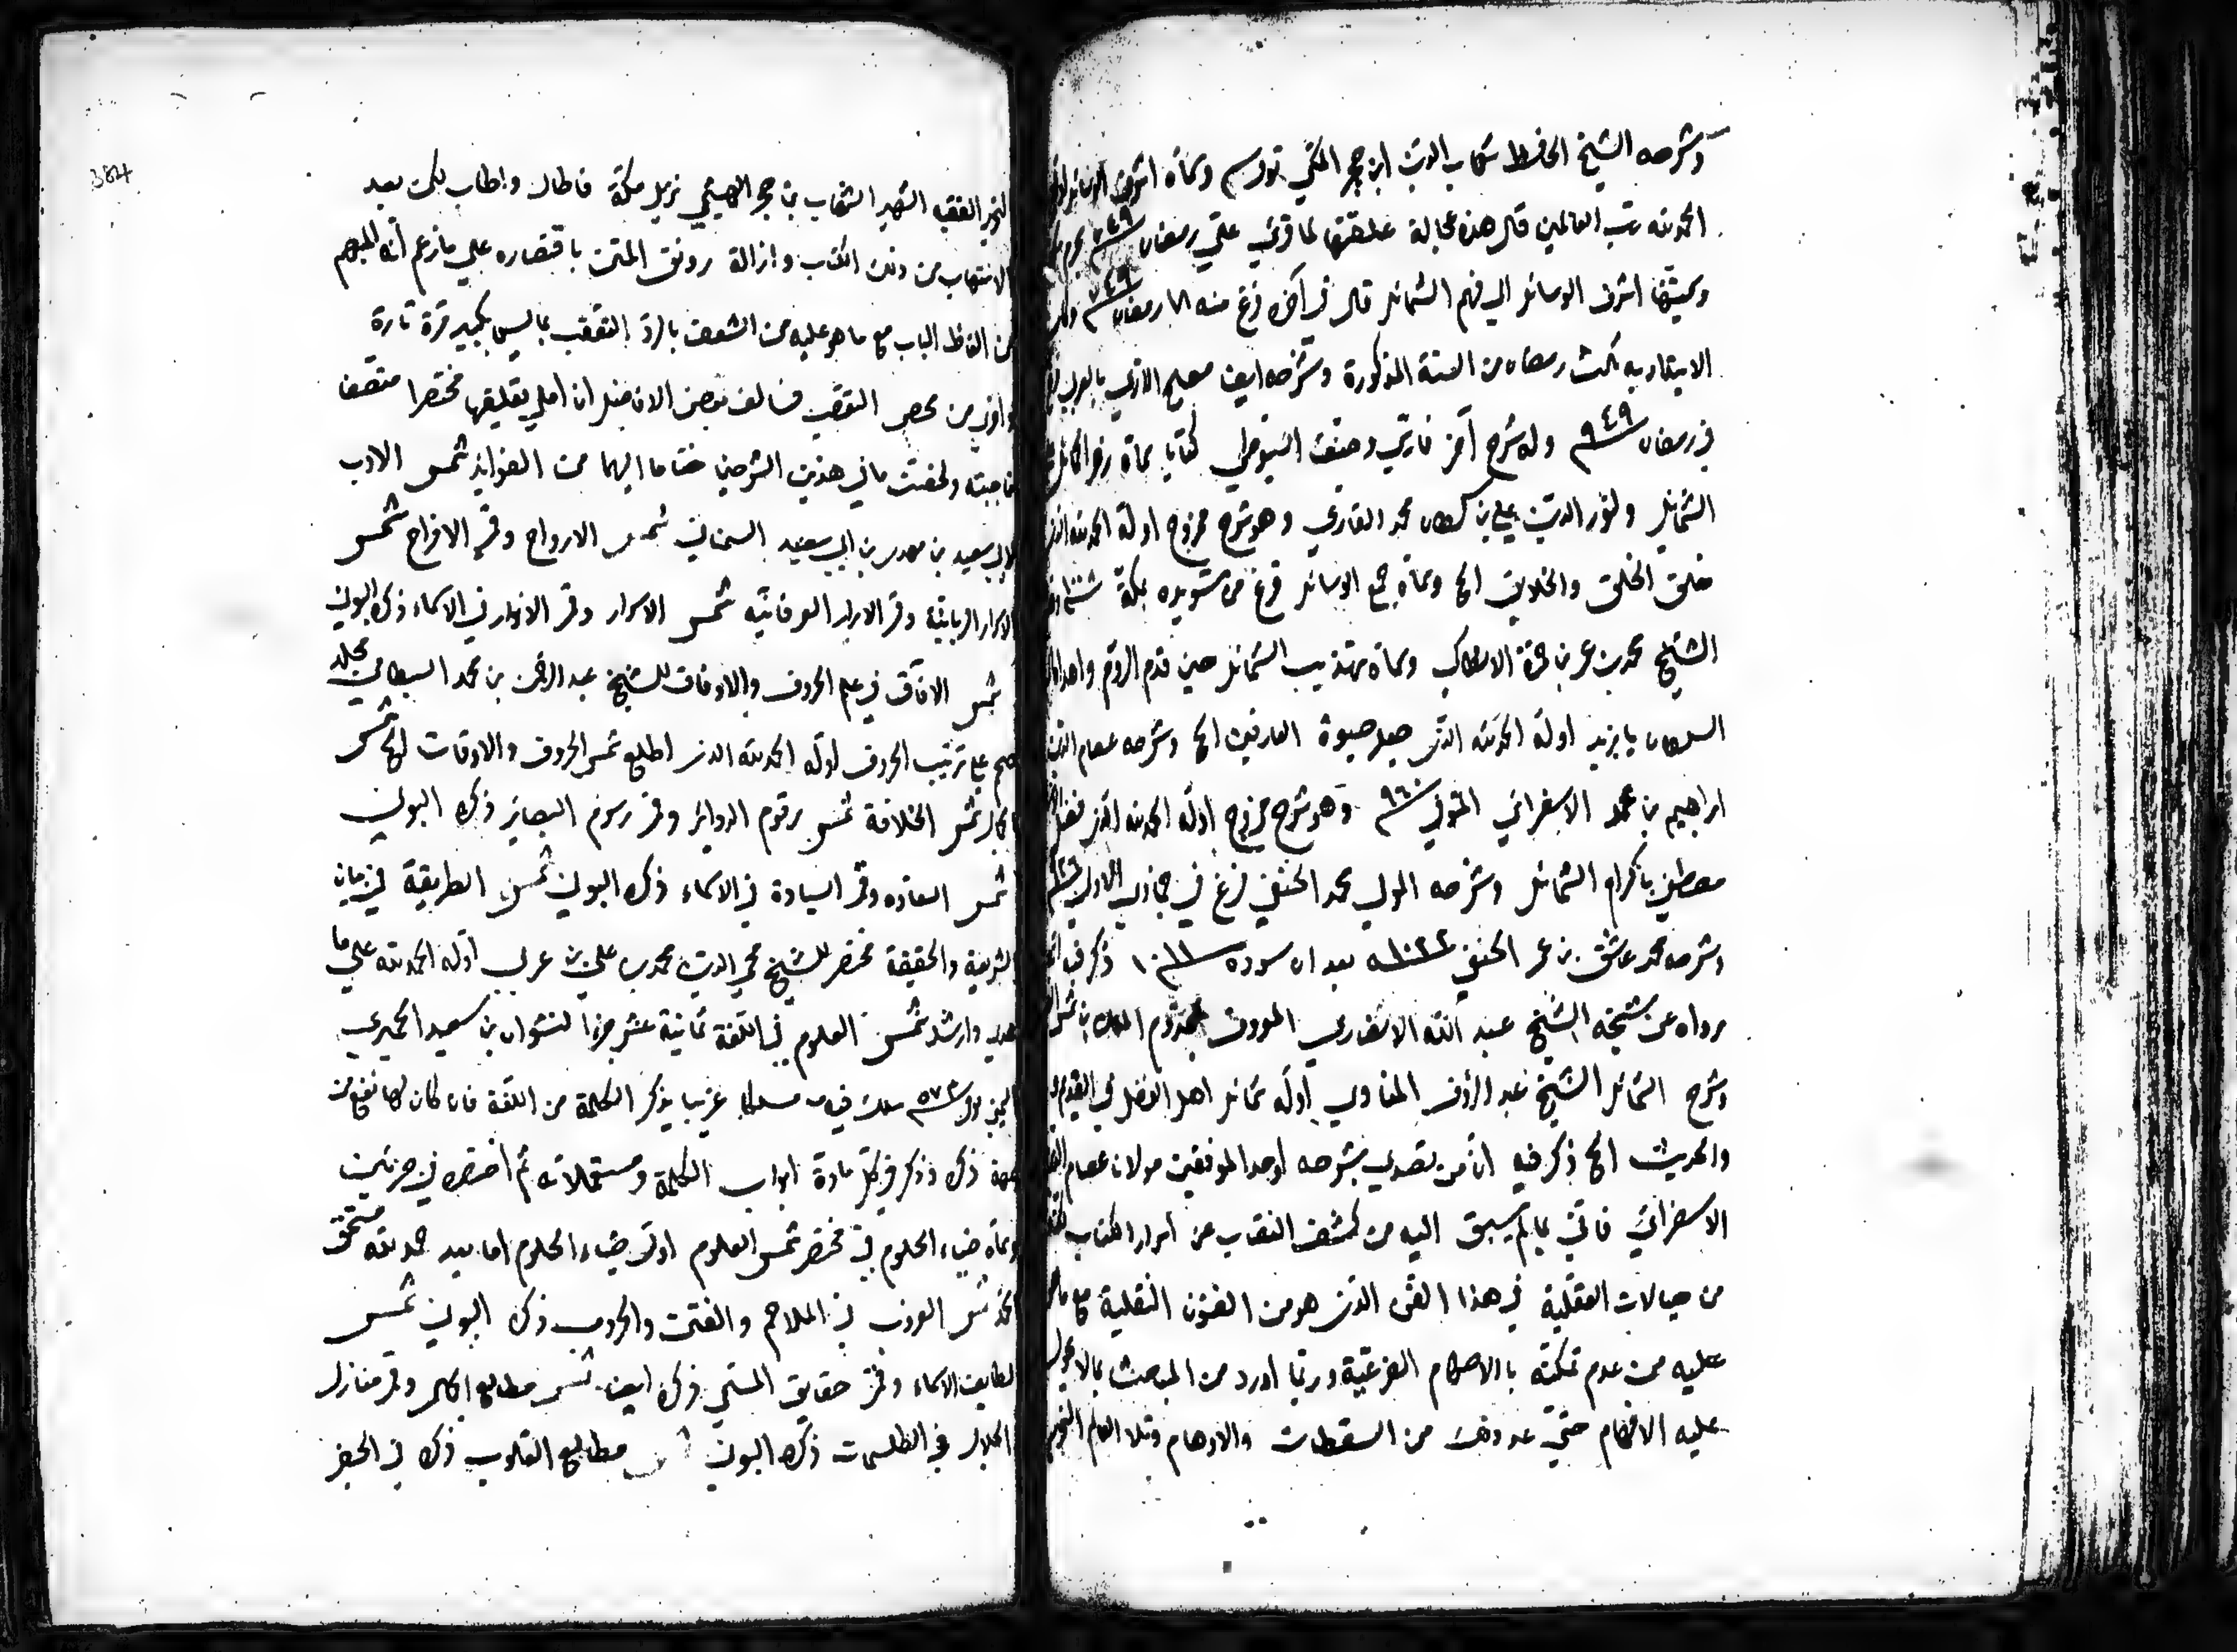 وشرحه الشيخ الحافظ شهاب الدين ابن حجر المكي توفى سنه وسماه اشرف الوسائل اوله
الحمد لله رب العالمين قال هذه عجالة علقتها لما قرئ علي رمضان ٩٤٩
وسميتها اشرف الوسائل الي فهم الشمائل قال في آخره فرغ منه رمضان ٩٤٩ وكان
الابتداء به ثالث رمضان من السنة المذكورة وشرحه ايضا مصلح الدين اللاري بالعربي
في رمضان ٩٤٩ وله شرح آخر فارسي وصنف السيوطي كتابا سماه زهر الخمائل
الشمائل ولنور الدين علي بن سلطان محمد القاري وهو شرح ممزوج اوله الحمد لله الذي
خلق الخلق والخلايق الخ وسماه جمع الوسائل فرغ من تسويده بمكة
الشيخ محمد بن عمر بن حمزة الانطاكي وسماه تهذيب الشمائل حين قدم الروم واهداه الي
السلطان بايزيد اوله الحمد لله الذي جعل حيوة العارفين الخ وشرحه عصام الدين
ابراهيم بن محمد الاسفرائني المتوفي ٩٤٣ وهو شرح ممزوج اوله الحمد لله الذي فضل
مصطفي باكرام الشمائل وشرحه المولي محمد الحنفي فرغ في جمادي الاولي ٩٢٦
وشرحه محمد عاشق بن عمر الحنفي ١٠٣٢ بعد ان سوده ١٠١١ ذكر فيه انه
رواه عن شيخه الشيخ عبد الله الانصاري المعروف بمخدوم الملك بن شمس الدين
وشرح الشمائل الشيخ عبد الرؤف المناوي اوله شمائل اهل الفضل في القديم
والحديث الخ ذكر فيه ان من تصدي بشرحه اوحد الموفقين مولانا عصام الدين
الاسفرائني فاتي بما لم يسبق اليه من كشف النقاب عن اسرار الكتاب لكنه
من خيالات العقلية في هذا الفن الذي هو من الفنون النقلية مع ما هو
عليه من عدم تمكنه بالاحكام الفرعية وربما اورد من المباحث ما لا تعول
عليه الافهام حتي عد ذلك من السقطات والاوهام وتلاه العالم النحرير
النحرير الفقيه الشهير الشهاب بن حجر الهيتمي نزيل مكة فاطال واطاب لكن بعد
الانتهاب من ذلك الكتاب وازالة رونق المتن باقتصاره علي ما زعم انه المبهم
من الفاظ الباب مع ما هو عليه من الشعف بالرد والتعقب بما ليس بكبير مرة تارة
واوني من محض التعصب فسالف بعض الافاضل ان املي تعليقها مختصرا منصفا
فاجبته ولخصت ما في هذين الشرحين ضاما اليهما من الفوايد شمس الادب
لابي سعيد بن محمد بن ابي سعيد السمناني شمس الارواح وقمر الافراح شمس
الاسرار الربانية وقمر الابرار العرفانية شمس الاسرار وقمر الانوار في الاسماء ذكره البوني
شمس الافاق في علم الحروف والاوفاق للشيخ عبد الرحمن بن محمد البسطامي مجلد
ضخم علي ترتيب الحروف اوله الحمد لله الذي اطلع شمس الحروف والاوفاق الخ شمس
الجمال شمس الخلافة شمس رقوم الدوائر وقمر رسوم البصاير ذكره البوني
شمس السعادة وقمر السيادة في الاسماء ذكره البوني شمس الطريقة في بيان
الشريعة والحقيقة مختصر للشيخ محي الدين محمد بن علي بن عربي اوله الحمد لله علي ما
هدي وارشد شمس العلوم في اللغة ثمانية عشر جزءا لنشوان بن سعيد الحميري
اليمني توفى سنة ٥٧٣ سلك فيه مسلكا غريبا يذكر الكلمة من اللغة فان كان لها نفع من
جهة ذكره فذكر في كل مادة ابواب الكلمة ومستعملاته ثم اختصره في جزئين
وسماه ضياء الحلوم في مختصر شمس العلوم اول ضياء الحلوم اما بعد حمد لله مستحق
الحمد شمس الغرب في الملاحم والفتن والحروب ذكره البوني شمس
لطايف الاسماء وقمر حقايق المسمي ذكره ايضا شمس مطالع الكمال وقمر منازل
الجلال في الطلسمات ذكره البوني شمس مطالع القلوب ذكره في الجفر
384